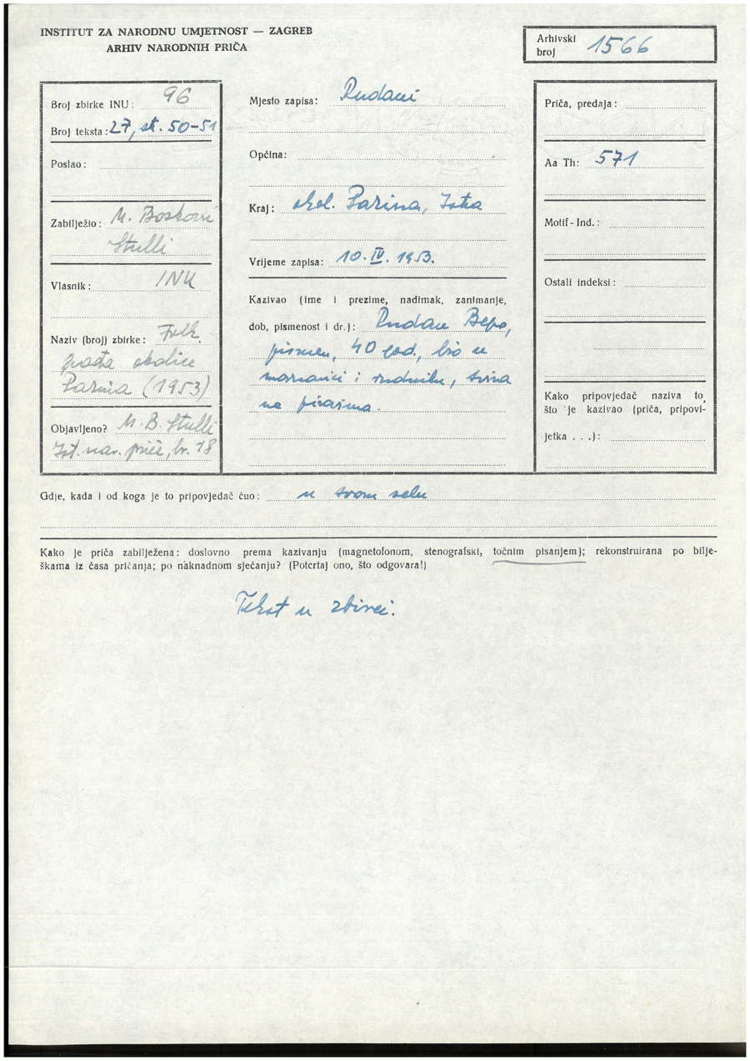 INSTITUT ZA NARODNU UMJETNOST — ZAGREB
ARHIV NARODNIH PRIČA
Arhivski
broj 1566
Broj zbirke INU: 96
Broj teksta: 27, str. 50-51
Poslao:
Zabilježio: M. Bošković
Stulli
Vlasnik: INU
Naziv (broj) zbirke: Folk.
građa okolice
Pazina (1953)
Objavljeno? M. B. Stulli
Ist. nar. priče, br. 18
Mjesto zapisa: Rudani
Općina:
Kraj: okol. Pazina, Istra
Vrijeme zapisa: 10. IV. 1953.
Kazivao (ime i prezime, nadimak, zanimanje,
dob, pismenost i dr.): Rudan Bepo,
pismen, 40 god., bio u
mornarici i rudniku, svira
na
Priča, predaja:
Aa Th: 571
Motif-Ind.:
Ostali indeksi:
Kako pripovjedač naziva to,
što je kazivao (priča, pripovi-
jetka . . .):
Gdje, kada i od koga je to pripovjedač čuo: u svom selu
Kako je priča zabilježena: doslovno prema kazivanju (magnetofonom, stenografski, točnim pisanjem); rekonstruirana po bilje-
škama iz časa pričanja; po naknadnom sjećanju? (Potcrtaj ono, što odgovara!)
Tekst u zbirci.